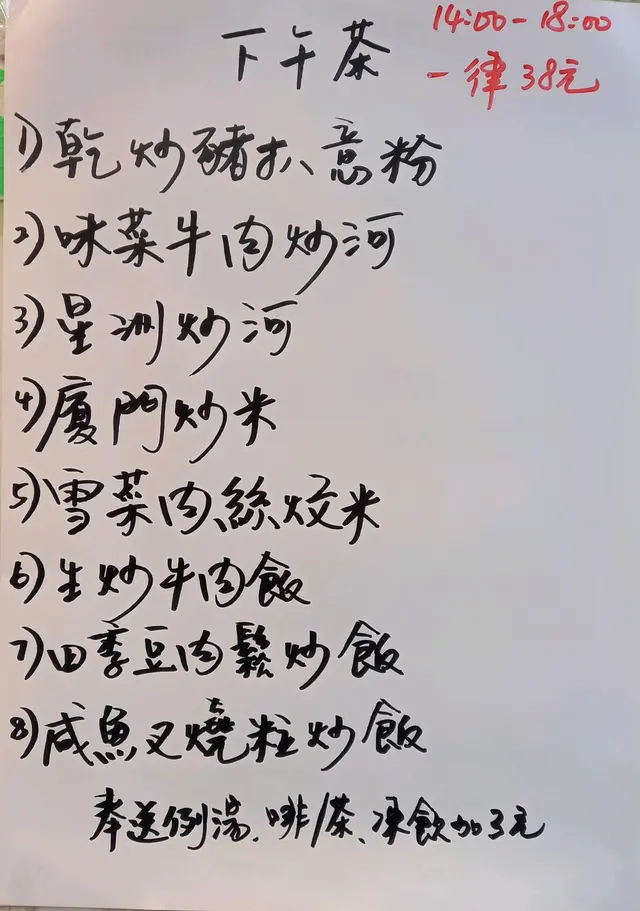 下午茶
14:00-18:00
一律38元
1)乾炒豬扒意粉
2)味菜牛肉炒河
3)星洲炒河
4)廈門炒米
5)雪菜肉絲炆米
6)生炒牛肉飯
7)四季豆肉鬆炒飯
8)咸魚叉燒粒炒飯
奉送例湯、啡/茶、凍飲加3元